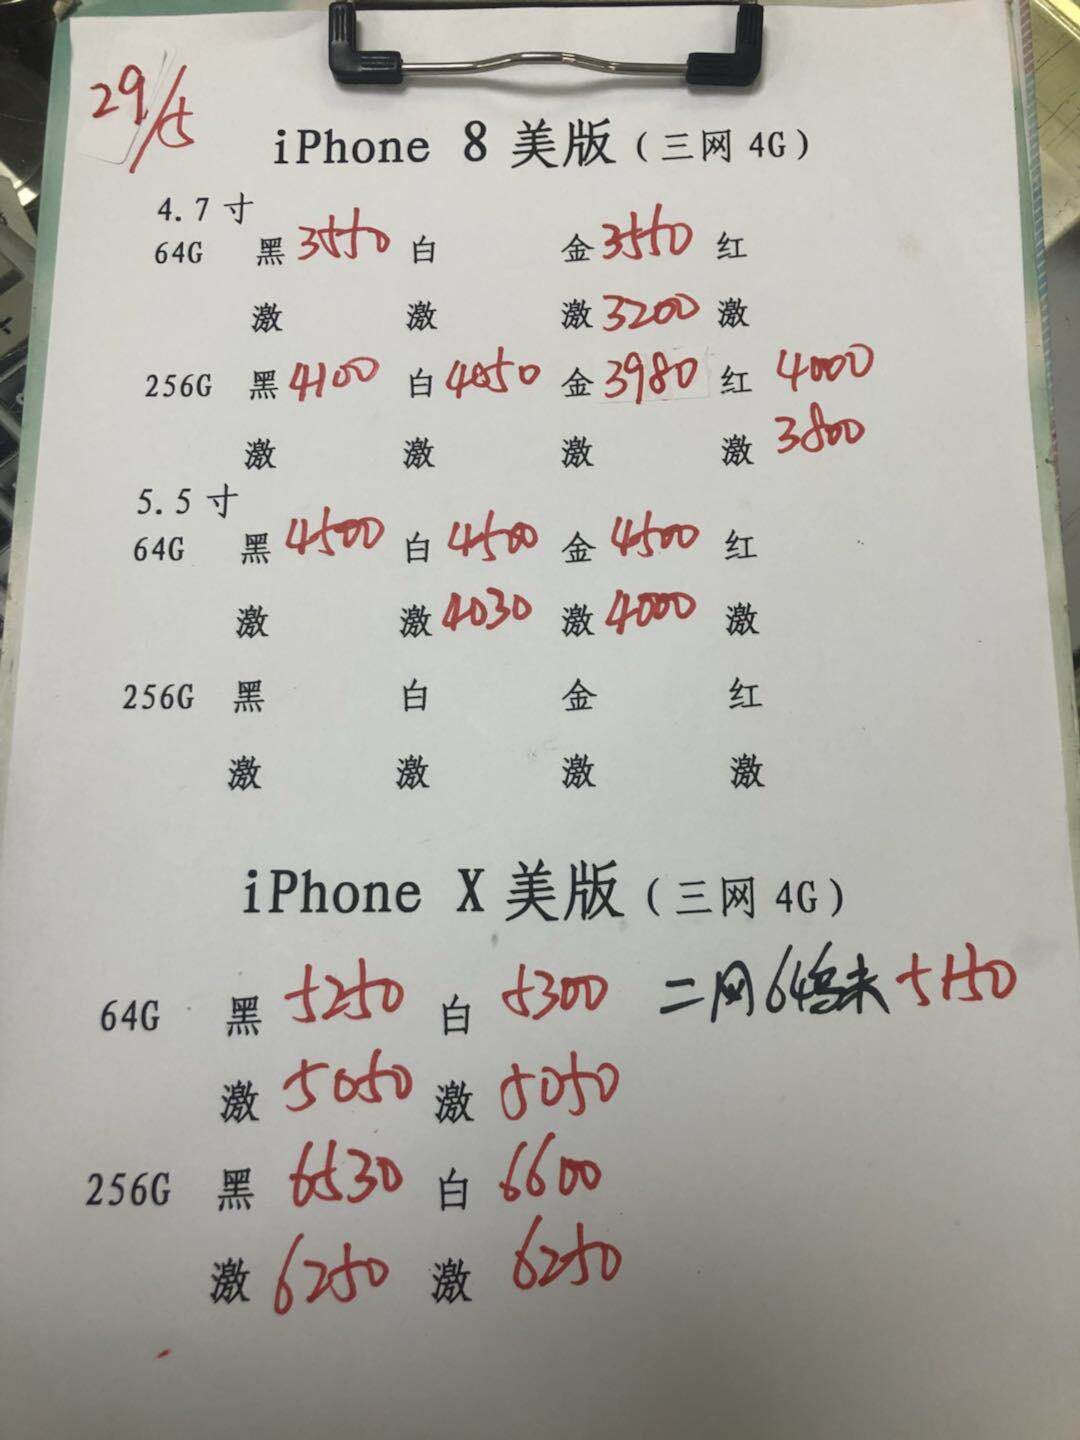 29/5
iPhone 8 美版（三网 4G）
4.7 寸
64G 黑 3550 白 金 3550 红
激 激 激 3200 激
256G 黑 4100 白 4050 金 3980 红 4000
激 激 激 激 3800
5.5 寸
64G 黑 4500 白 4500 金 4500 红
激 激 4030 激 4000 激
256G 黑 白 金 红
激 激 激 激
iPhone X 美版（三网 4G）
64G 黑 5250 白 5300 二网 64 未 5150
激 5050 激 5050
256G 黑 6530 白 6600
激 6250 激 6250